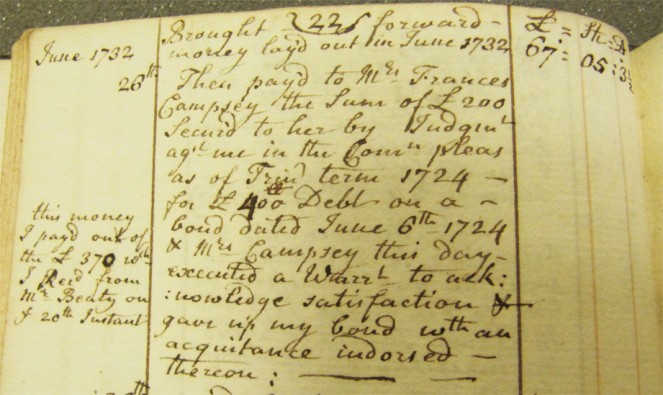 Brought 225 forward - £ = Sh = D
money lay'd out in June 1732 67 : 05 : 3½
June 1732
26th Then pay'd to Mrs Frances
Campsey the Sum of £ 200
Secur'd to her by Judgmt
agst me in the Comn pleas
as of Trind term 1724 —
for £ 400 Debt on a -
bond dated June 6th 1724
& Mrs Campsey this day-
executed a Warrt to ack:
:nowledge satisfaction &
gave up my bond wth an
acquitance indorsed —
thereon : — — —
this money
I payd out of
the £ 370 wch
I Recd from
Mr Beaty on
ye 20th Instant